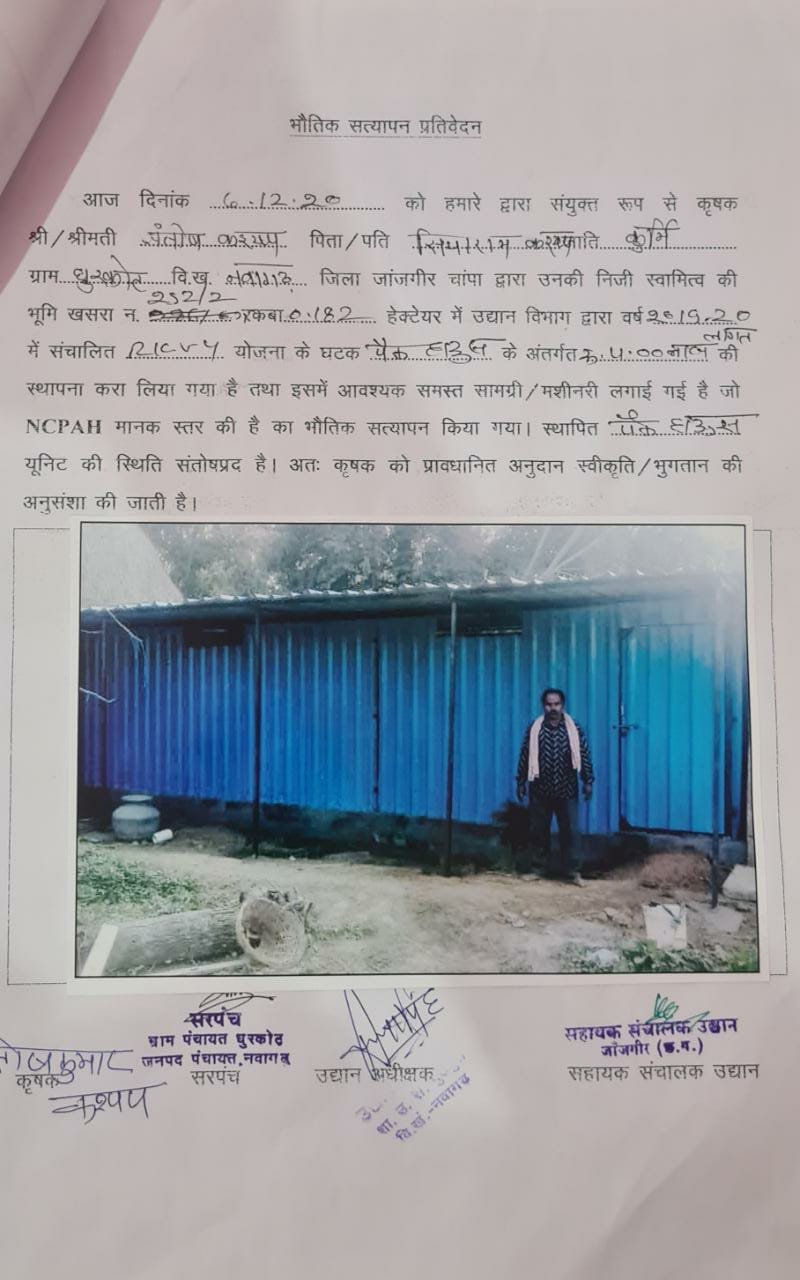 भौतिक सत्यापन प्रतिवेदन
आज दिनांक 6.12.20 को हमारे द्वारा संयुक्त रूप से कृषक
श्री/श्रीमती संतोष कश्यप पिता/पति सियाराम कश्यप जाति कुर्मि
ग्राम धुरकोट वि.ख. नवागढ़ जिला जांजगीर चांपा द्वारा उनकी निजी स्वामित्व की
252/2
भूमि खसरा न. रकबा 0.182 हेक्टेयर में उद्यान विभाग द्वारा वर्ष 2019.20
में संचालित RKVY योजना के घटक पैक हाउस के अंतर्गत रू. 4.00 लाख लागत की
स्थापना करा लिया गया है तथा इसमें आवश्यक समस्त सामग्री/मशीनरी लगाई गई है जो
NCPAH मानक स्तर की है का भौतिक सत्यापन किया गया। स्थापित पैक हाउस
यूनिट की स्थिति संतोषप्रद है। अतः कृषक को प्रावधानित अनुदान स्वीकृति/भुगतान की
अनुसंशा की जाती है।
सरपंच
ग्राम पंचायत धुरकोट
जनपद पंचायत, नवागढ़
सहायक संचालक उद्यान
जाँजगीर (छ.ग.)
कुमार
कृषक सरपंच उद्यान अधीक्षक सहायक संचालक उद्यान
कश्यप
शा. उ.
वि.खं.-नवागढ़